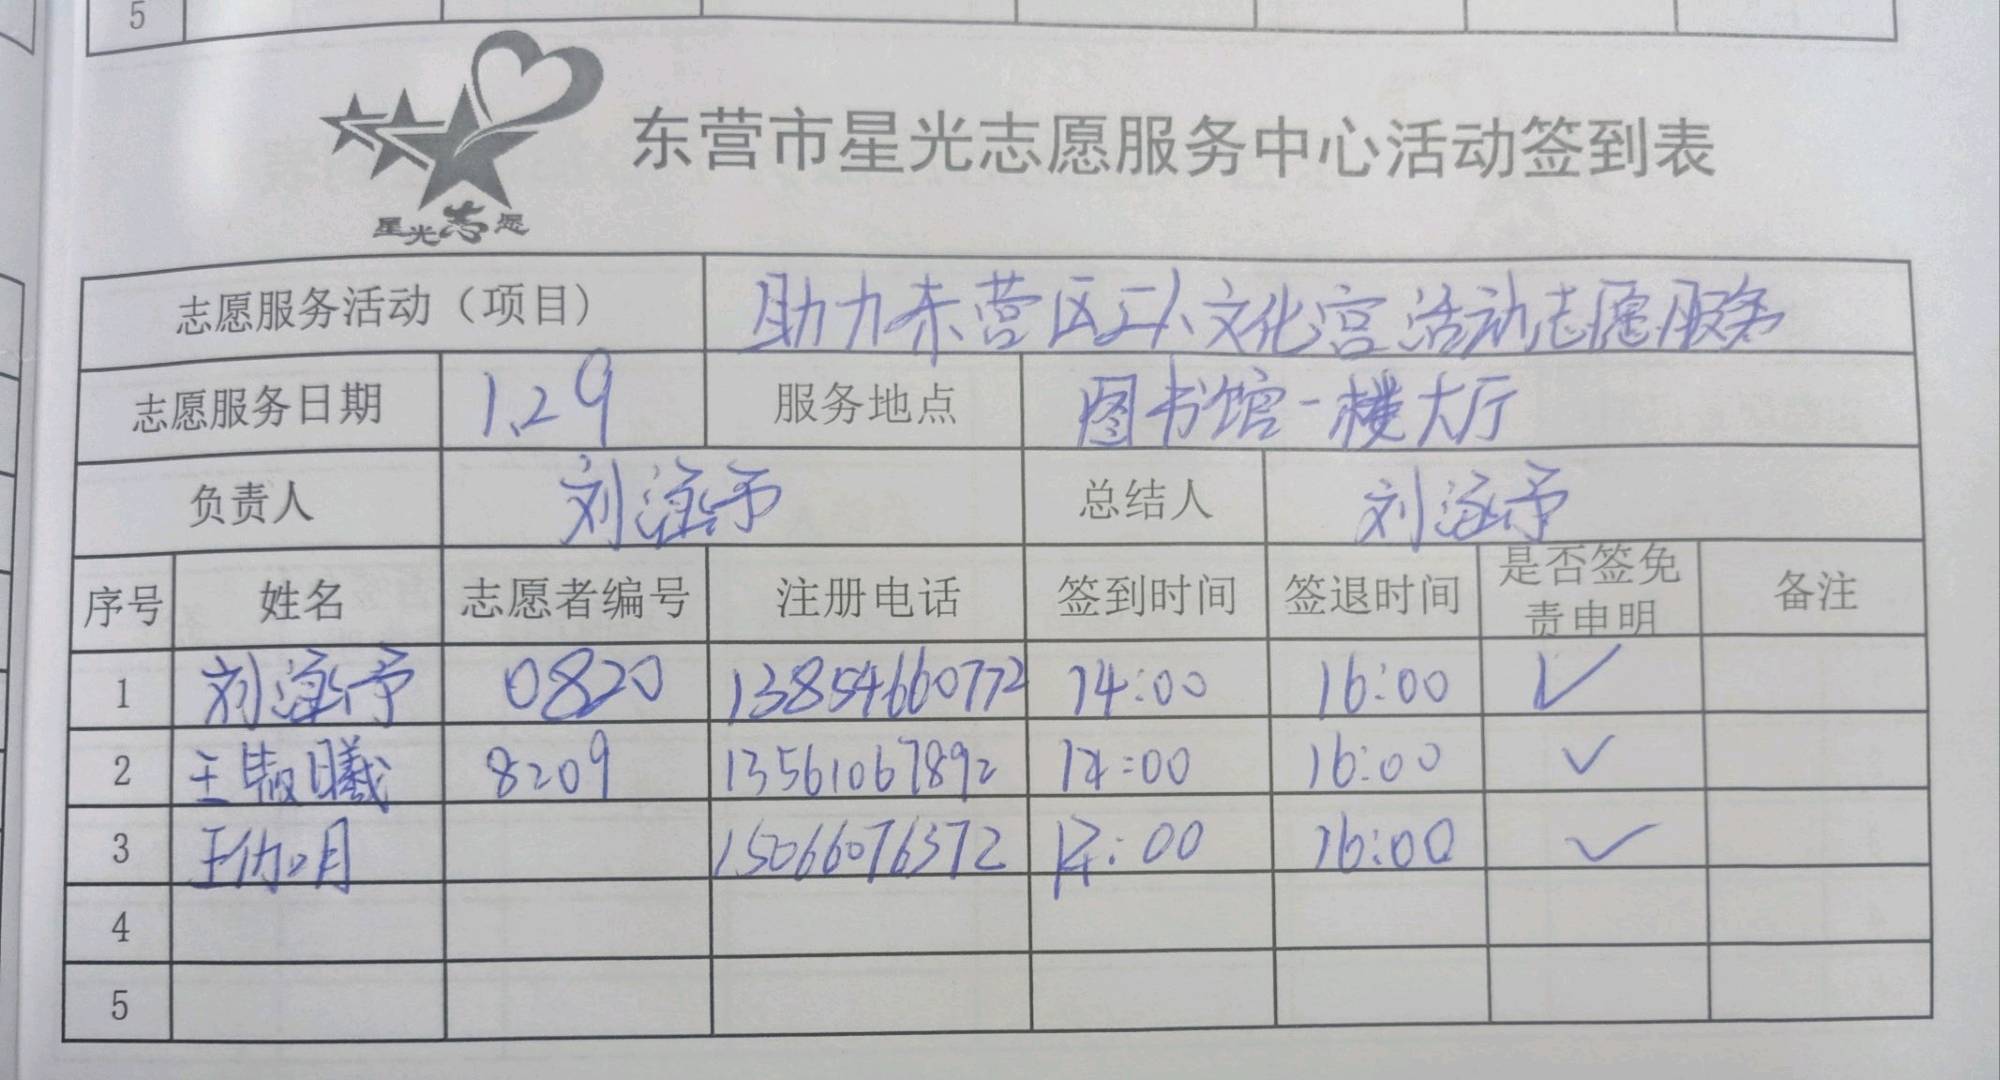 5
星光志愿
东营市星光志愿服务中心活动签到表
志愿服务活动（项目） 助力东营区工人文化宫活动志愿服务
志愿服务日期 1.29 服务地点 图书馆一楼大厅
负责人 刘涵予 总结人 刘涵予
序号 姓名 志愿者编号 注册电话 签到时间 签退时间 是否签免责申明 备注
1 刘涵予 0820 13854660772 14:00 16:00 ✓
2 王 曦 8209 13561067892 14:00 16:00 ✓
3 王 月 15066076372 14:00 16:00 ✓
4
5